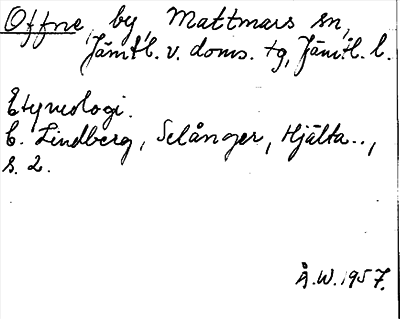 Offne, by, Mattmars sn,
Jämtl. v. doms. tg, Jämtl. l.
Etymologi.
C. Lindberg, Selånger, Hjälta..,
s. 2.
Å.W. 1957.